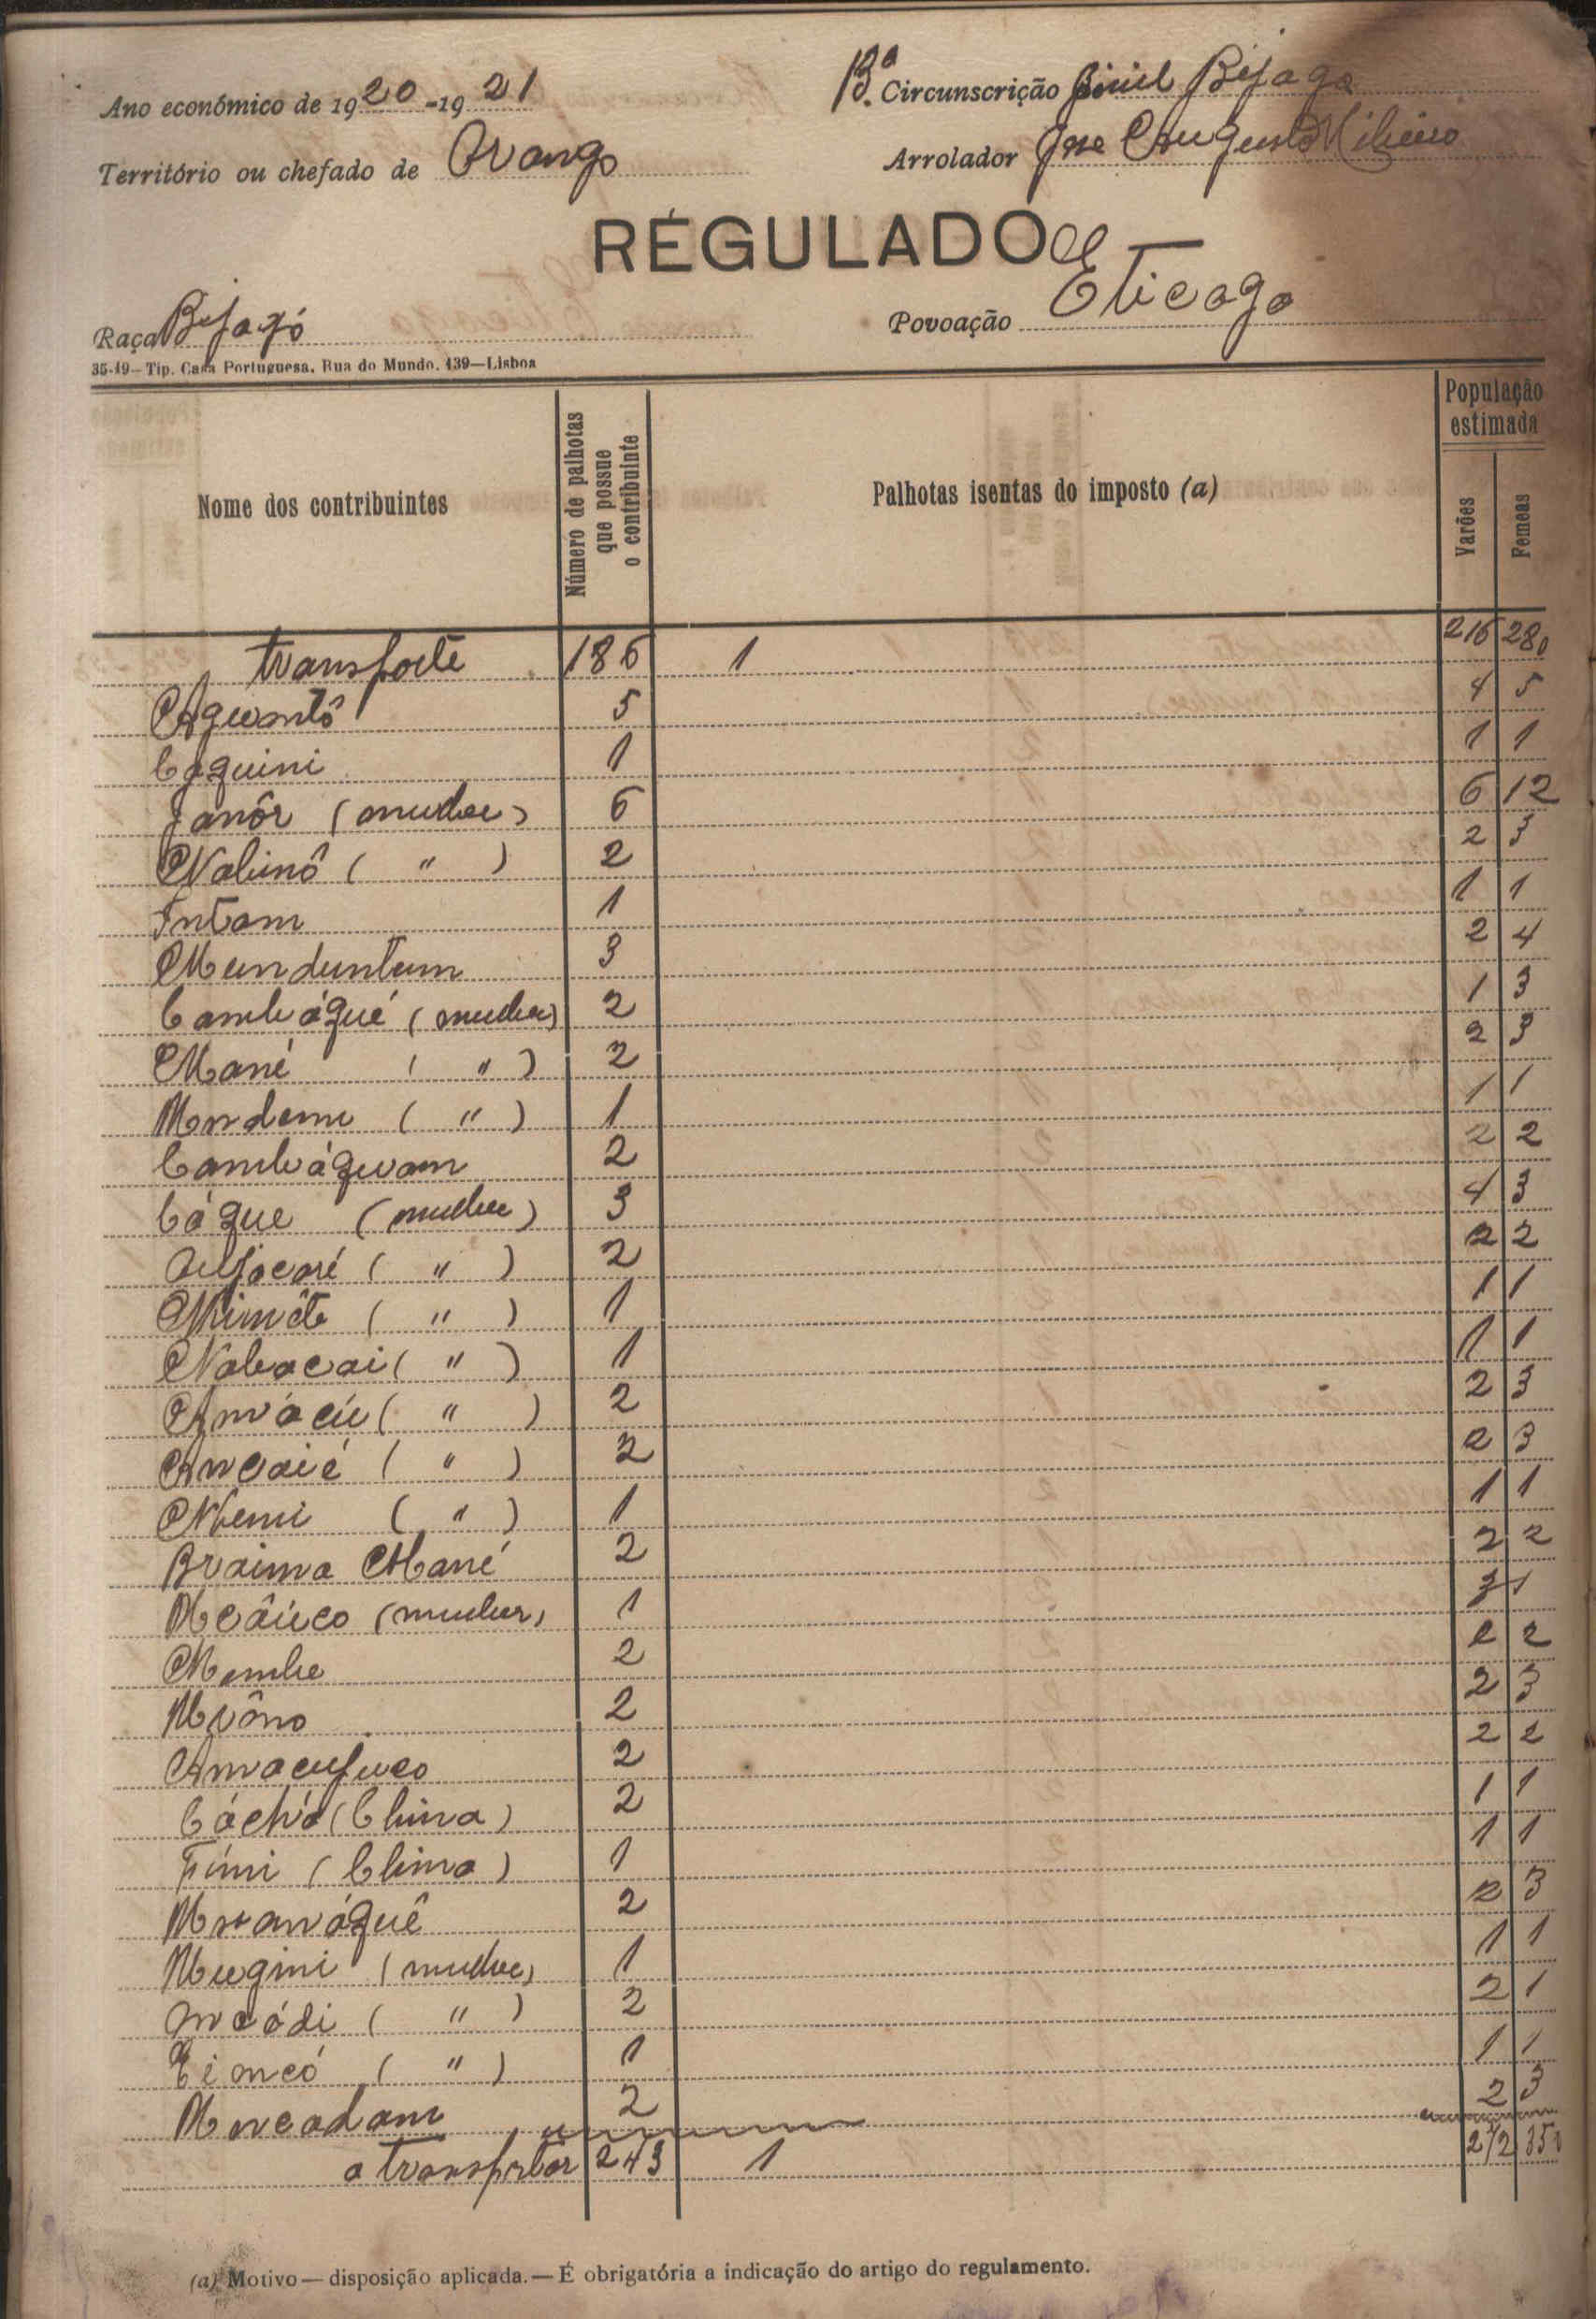 Ano económico de 1920-1921
13.ª Circunscrição Civil Bijagoz
Território ou chefado de Orango
Arrolador José Augusto Ribeiro
REGULADO de
Raça Bijagó
Povoação Eticoga
35-19—Tip. Casa Portuguesa. Rua do Mundo, 139—Lisboa
Nome dos contribuintes
Número de palhotas que possue o contribuinte
Palhotas isentas do imposto (a)
População estimada
Varões
Femeas
transporte 186 1 216 280
Aquantô 5 4 5
Caquini 1 1 1
Janôr (mulher) 6 6 12
Nabinô ( " ) 2 2 3
Intam 1 1 1
Munduntum 3 2 4
Cambáqué (mulher) 2 1 3
Mané ( " ) 2 2 3
( " ) 1 1 1
Cambáquam 2 2 2
Cáque (mulher) 3 4 3
( " ) 2 2 2
( " ) 1 1 1
Nabacai ( " ) 1 1 1
( " ) 2 2 3
Ancaié ( " ) 2 2 3
( " ) 1 1 1
Braima Mané 2 2 2
(mulher) 1 1
2 2 2
2 2 3
2 2 2
Cáchá (China) 2 1 1
Fimi (China) 1 1 1
2 2 3
(mulher) 1 1 1
( " ) 2 2 1
( " ) 1 1 1
2 2 3
a transportar 243 1 272 350
(a) Motivo—disposição aplicada.—É obrigatória a indicação do artigo do regulamento.